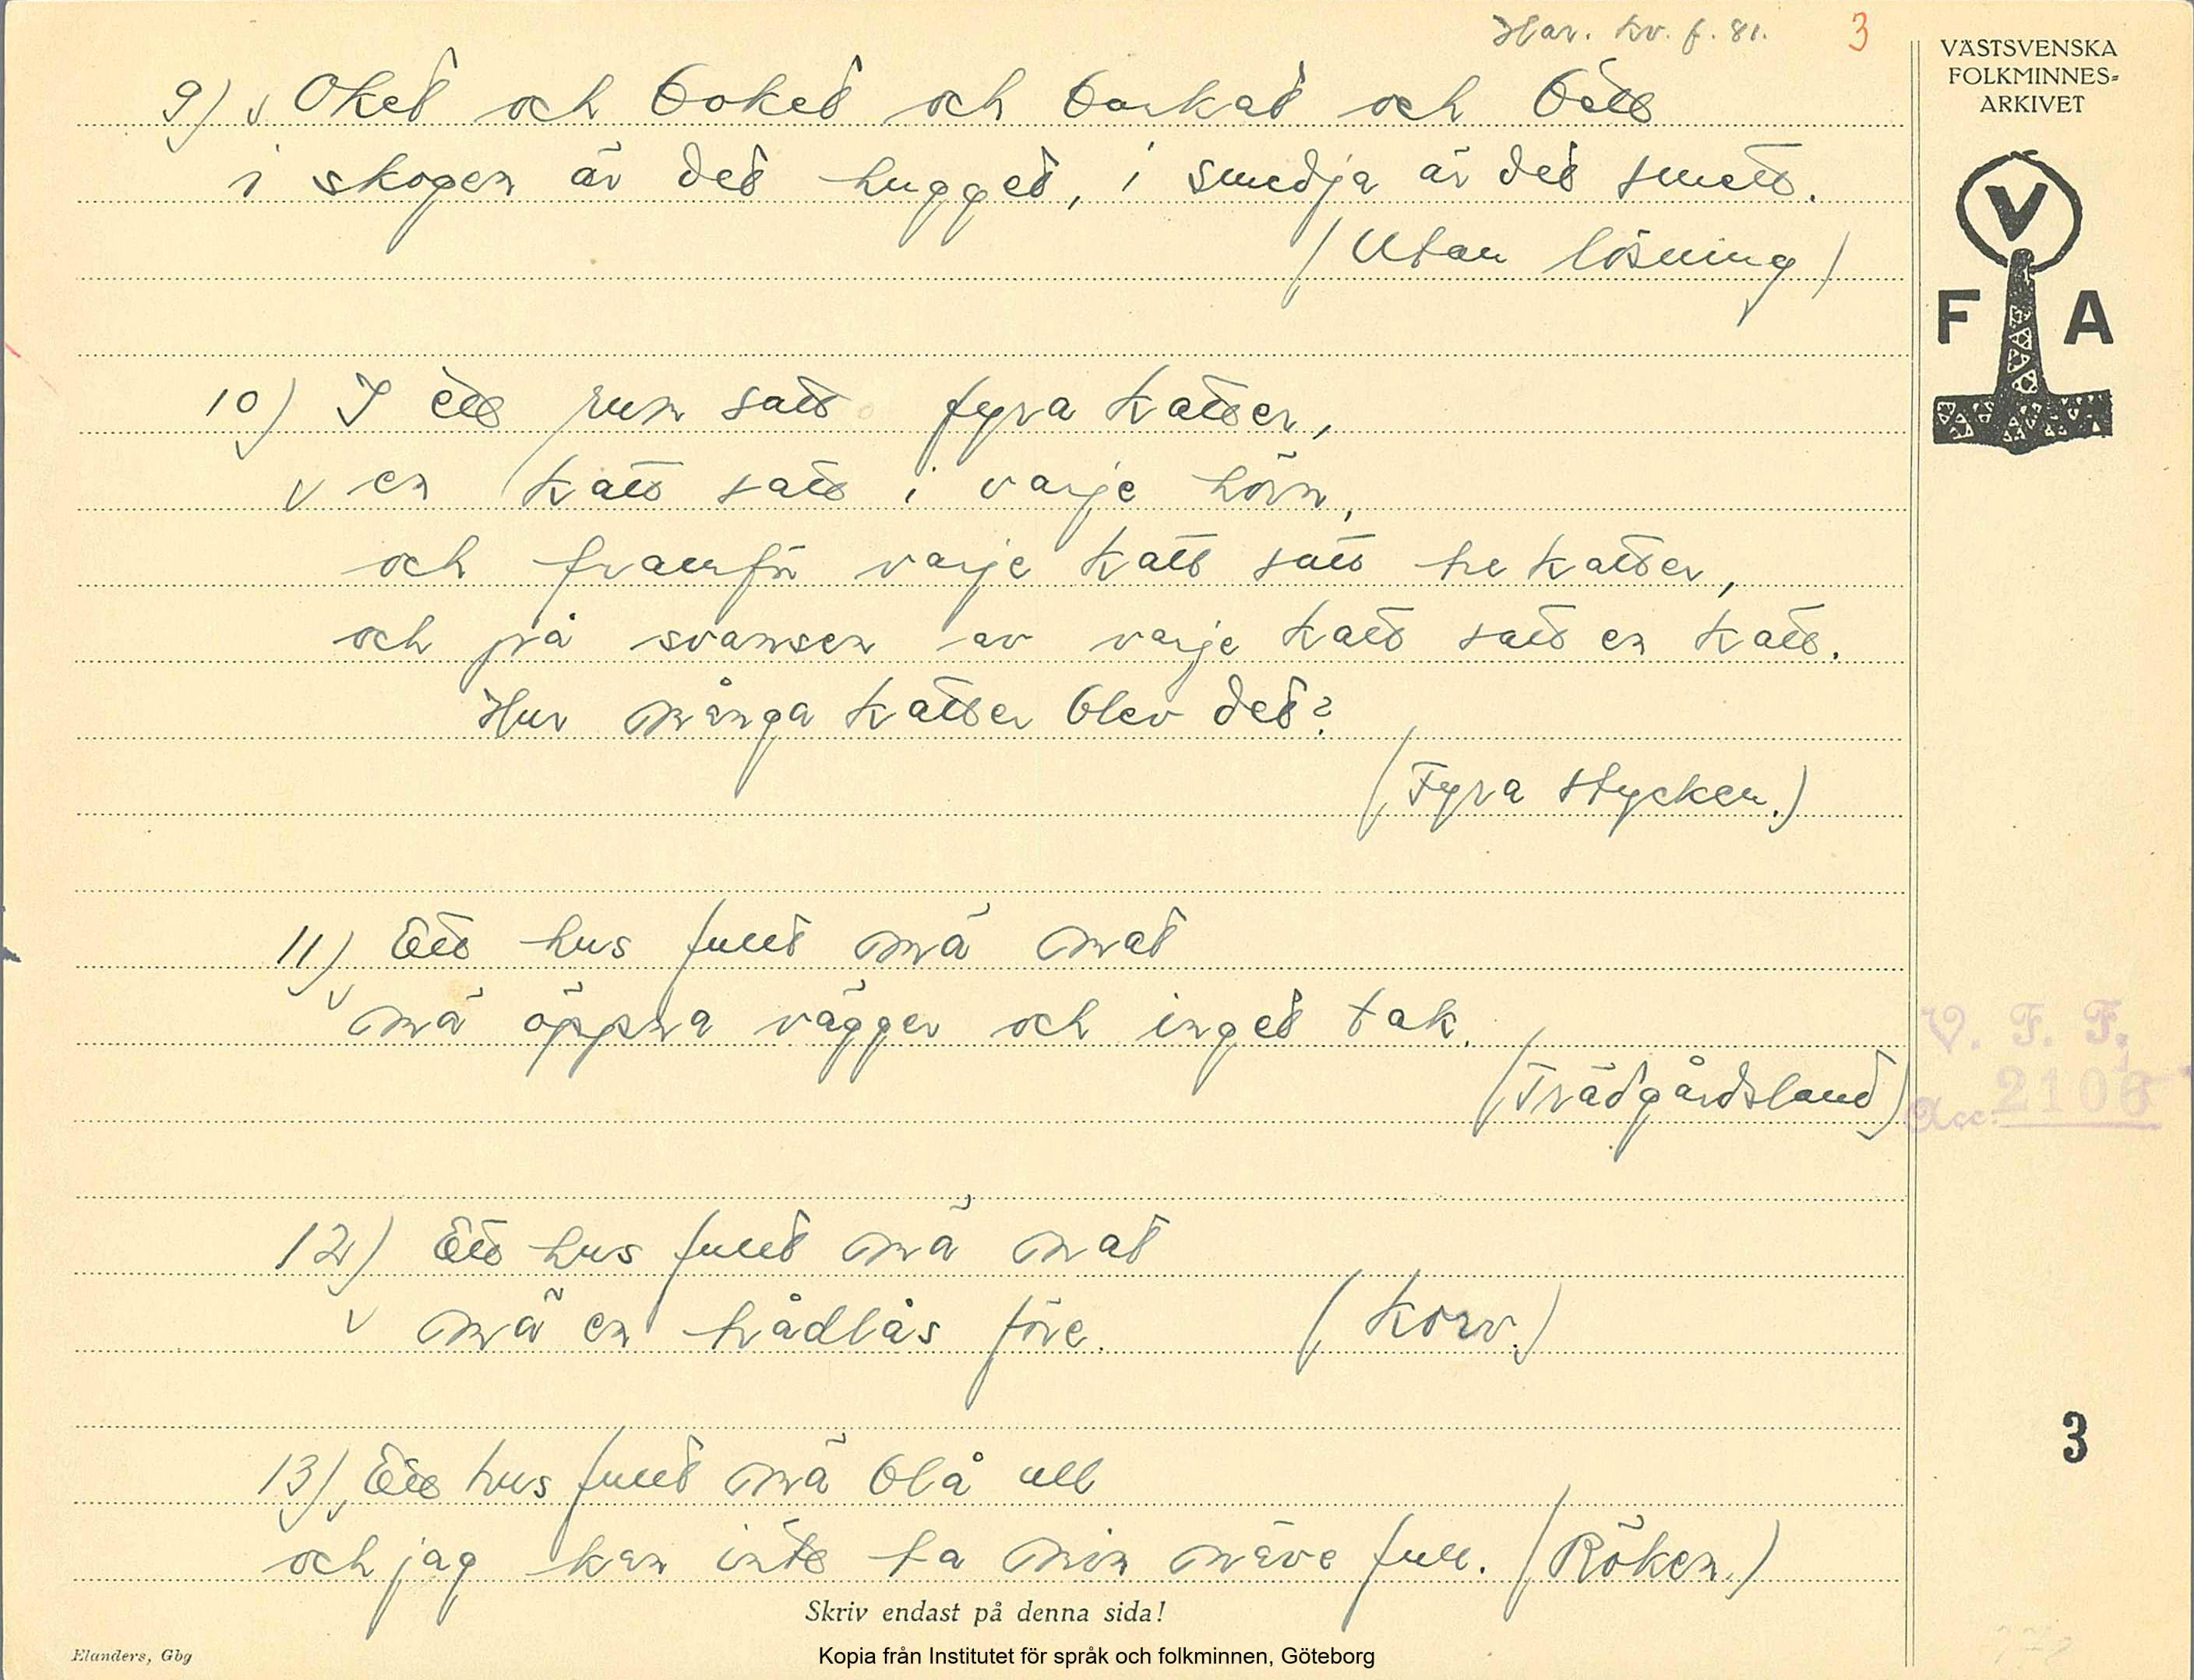 Har. kv. f. 81. 3
VÄSTSVENSKA
FOLKMINNES=
ARKIVET
V
F A
9) v Oket och boket och barkat och
i skogen är det hugget, i smedja är det smett.
(Utan lösning)
10) I ett rum satt fyra katter,
v en katt satt i varje hörn,
och framför varje katt satt tre katter,
och på svansen av varje katt satt en katt.
Hur många katter blev det?
(Fyra stycken.)
11) Ett hus fullt mä mat
v mä öppna vägger och inget tak.
(Trädgårdsland)
V. F. F.
Acc. 2106
12) Ett hus fullt mä mat
v mä en trådlås före. (Korv.)
3
13) v Ett hus fullt mä blå ull
och jag kan inte ta min näve full. (Röken.)
Skriv endast på denna sida!
Elanders, Gbg
Kopia från Institutet för språk och folkminnen, Göteborg